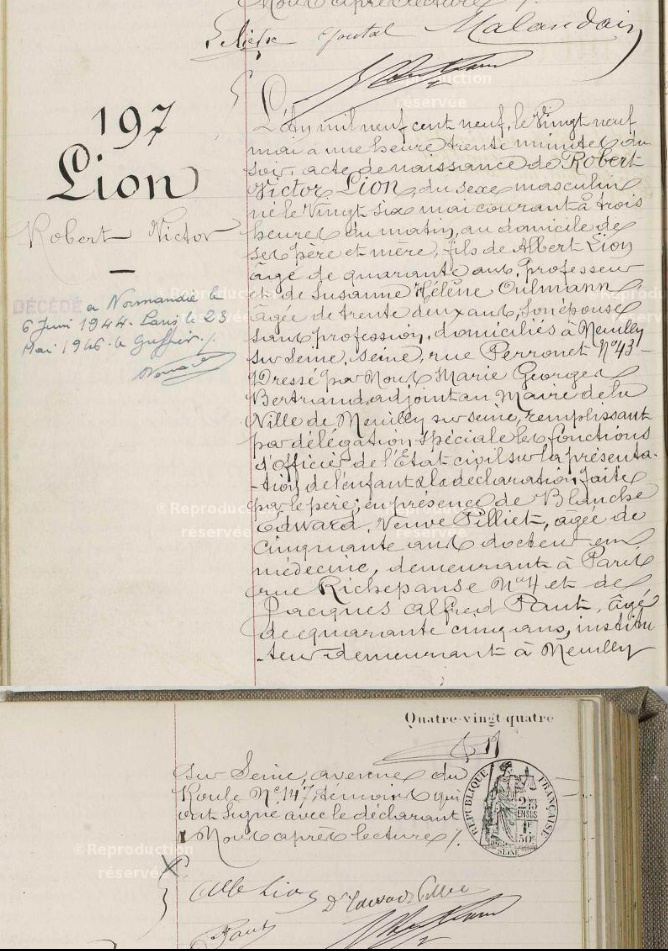 Nous après lecture /.
Malandain
197
Lion
Robert Victor
DÉCÉDÉ a Normandie le
6 Juin 1944. Paris le 23
Mai 1946. le Greffier./
L'An mil neuf cent neuf, le Vingt neuf
mai à une heure trente minutes du
soir, acte de naissance de Robert
Victor Lion, du sexe masculin
né le Vingt six mai courant à trois
heures du matin, au domicile de
ses père et mère, fils de Albert Lion
âgé de quarante ans, professeur
et de Susanne Hélène Oulmann
agée de trente deux ans, son épouse
sans profession, domiciliés à Neuilly
sur Seine, Seine, rue Perronet N° 43 -
Dressé par Nous Marie Georges
Bertrand, adjoint au Maire de la
Ville de Neuilly sur Seine, remplissant
par délégation spéciale les fonctions
d'officier de l'Etat civil sur la présenta-
-tion de l'enfant & la déclaration faite
par le père; en présence de Blanche
Edward, Veuve Pilliet, âgée de
cinquante ans docteur en
médecine, demeurant à Paris
rue Richepanse N° 4 et de
Jacques Alfred Paut, âgé
de quarante cinq ans, institu
-teur demeurant à Neuilly
Quatre-vingt quatre
sur Seine, avenue du
Roule N° 147, témoins qui
ont signé avec le déclarant
& Nous après lecture /.
RÉPUBLIQUE FRANÇAISE
2/10
EN SUS
1F
50c
SEINE
Alb Lion Dr Edwards Pilliet
Paut
©Reproduction
réservée
©Reproduction
réservée
©Reproduction
réservée
©Reproduction
réservée